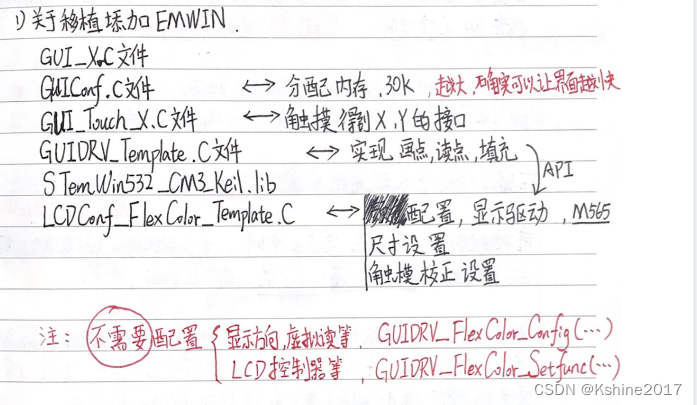 1) 关于移植添加EMWIN.
GUI_X.C文件
GUIConf.C文件 ↔ 分配内存, 30K, 越大,确实可以让界面越快
GUI_Touch_X.C文件 ↔ 触摸得到X,Y的接口
GUIDRV_Template.C文件 ↔ 实现画点,读点,填充
API
STemWin532_CM3_Keil.lib
LCDConf_FlexColor_Template.C ↔ 配置,显示驱动,M565
尺寸设置
触摸校正设置
注: 不需要配置 { 显示方向,虚拟读等, GUIDRV_FlexColor_Config(…)
LCD控制器等, GUIDRV_FlexColor_Setfunc(…)
CSDN @Kshine2017